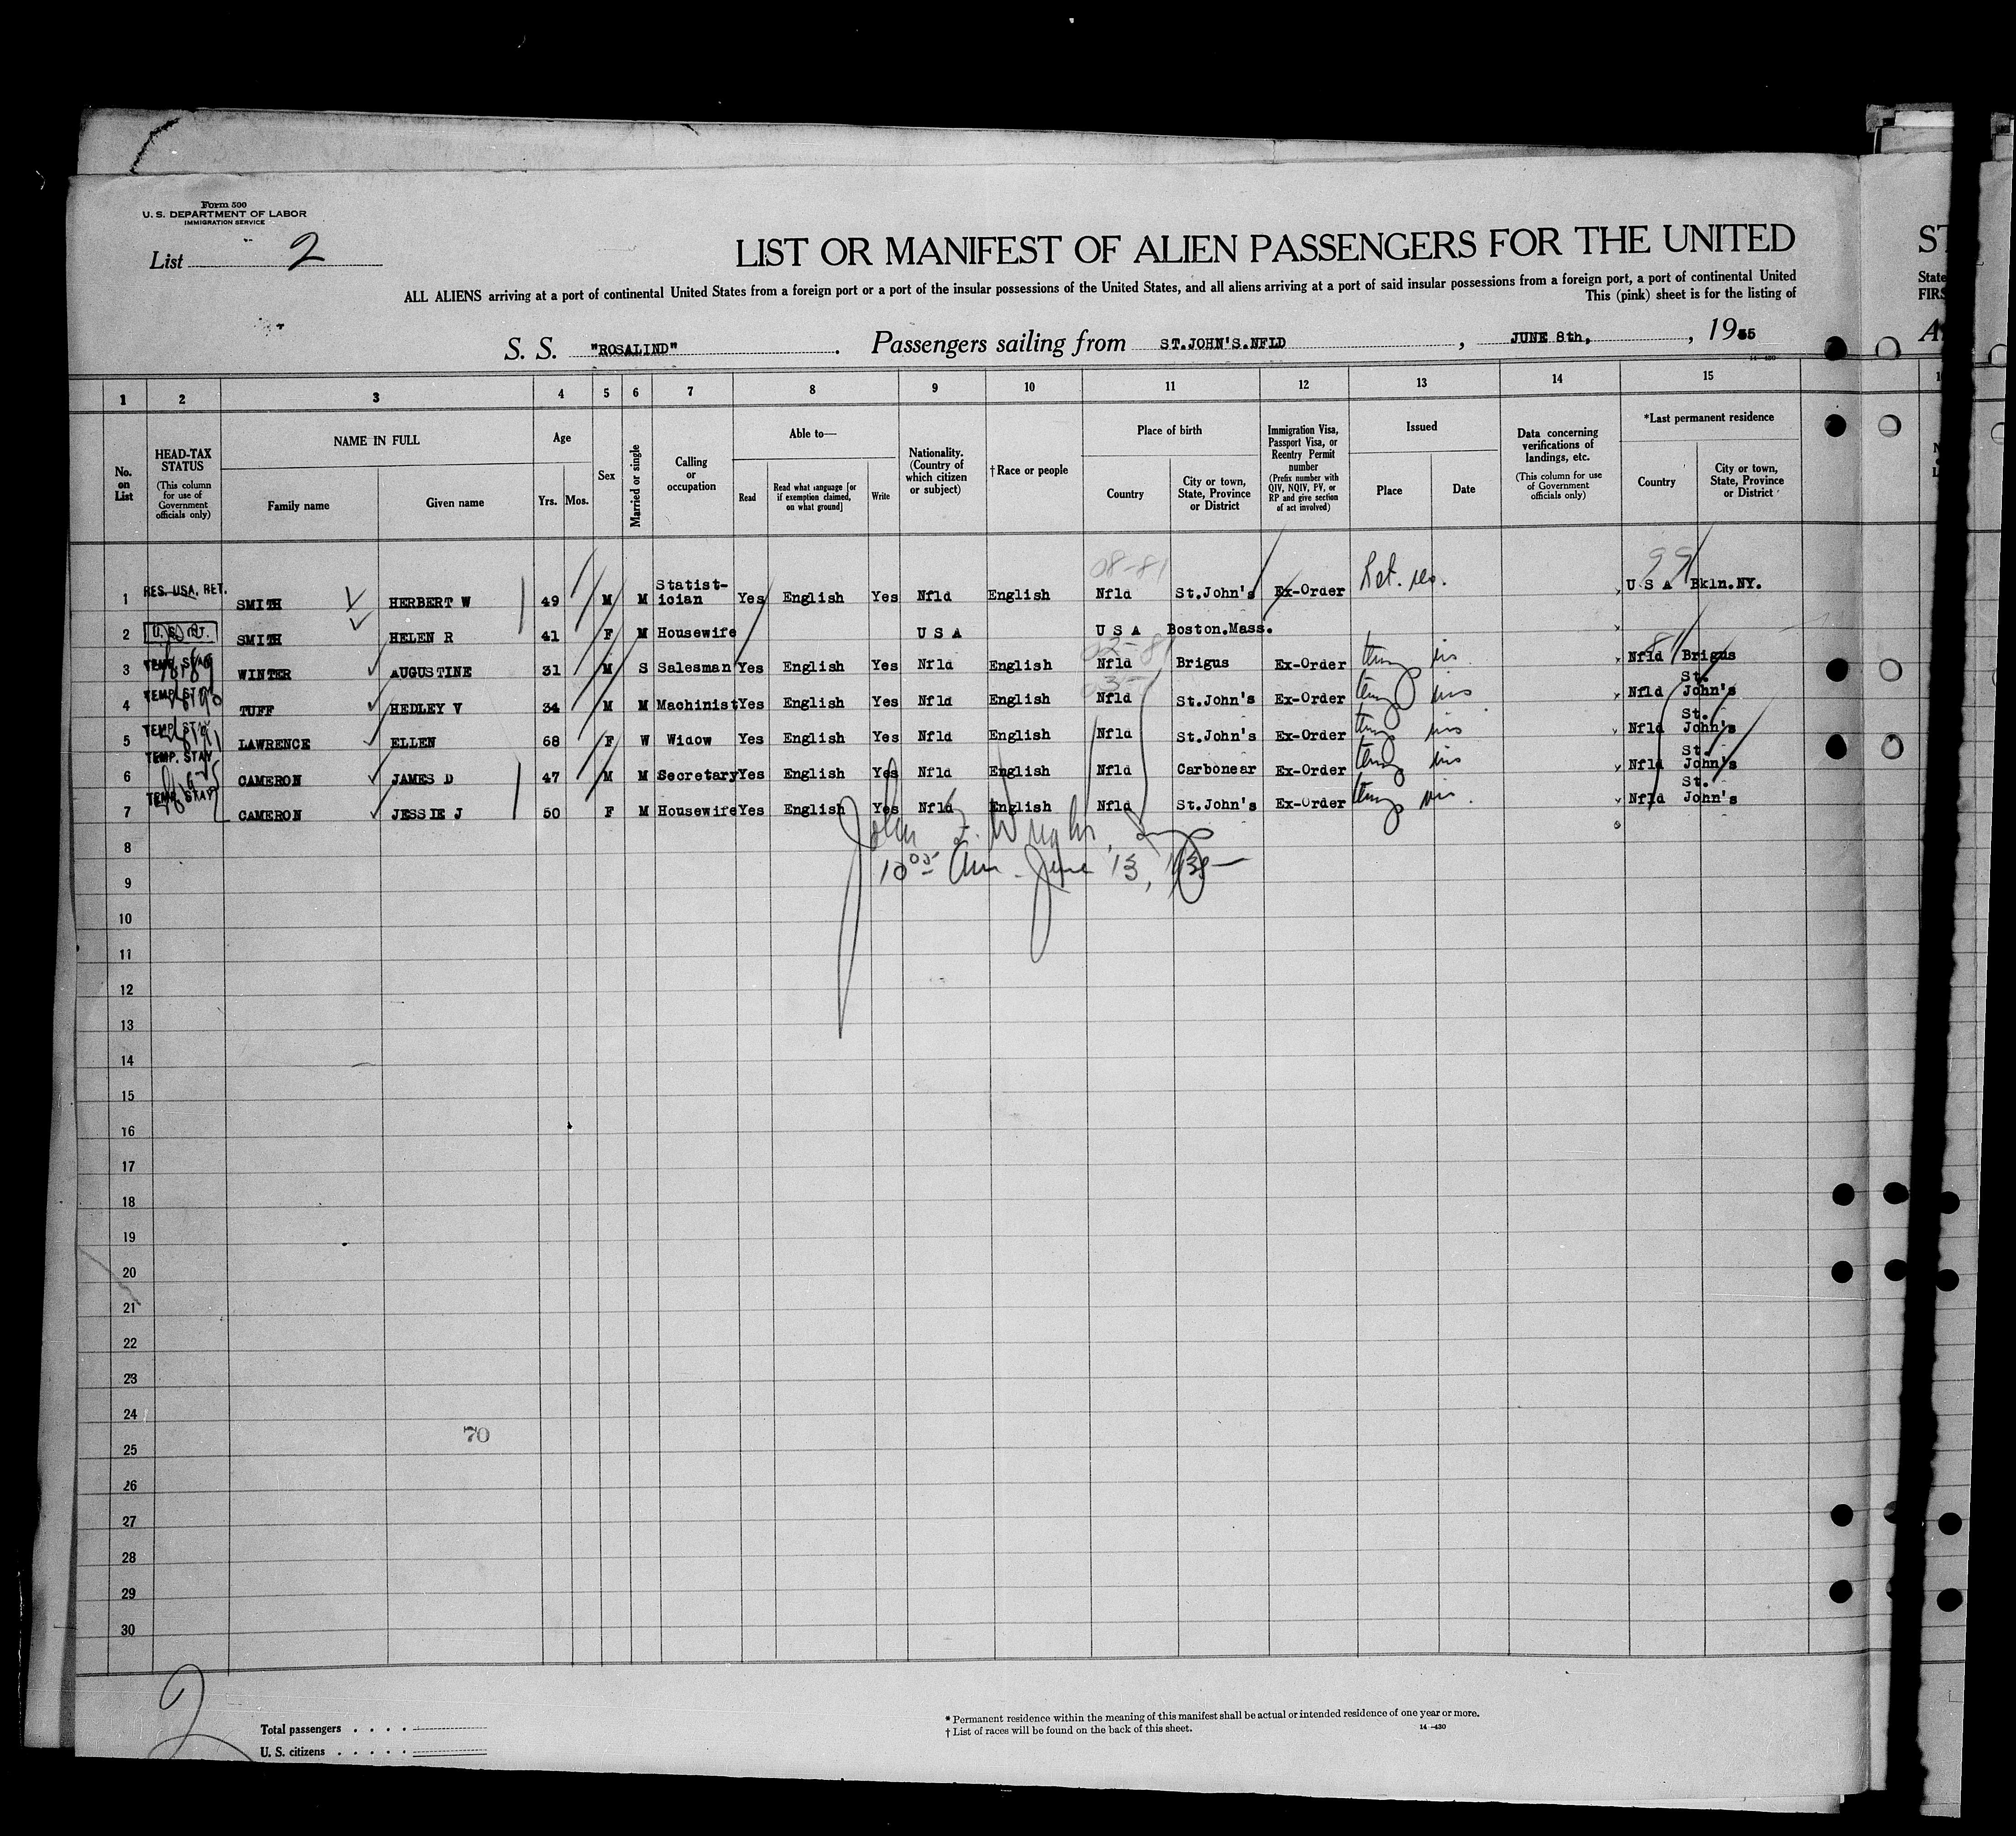 Form 500
U. S. DEPARTMENT OF LABOR
IMMIGRATION SERVICE
List 2
LIST OR MANIFEST OF ALIEN PASSENGERS FOR THE UNITED
ALL ALIENS arriving at a port of continental United States from a foreign port or a port of the insular possessions of the United States, and all aliens arriving at a port of said insular possessions from a foreign port, a port of continental United
This (pink) sheet is for the listing of
S. S. "ROSALIND". Passengers sailing from ST.JOHN'S.NFLD, JUNE 8th, , 1935
1 2 3 4 5 6 7 8 9 10 11 12 13 14 15
No. on List
HEAD-TAX STATUS
(This column for use of Government officials only)
NAME IN FULL
Family name
Given name
Age
Yrs. Mos.
Sex
Married or single
Calling or occupation
Able to—
Read
Read what language [or if exemption claimed, on what ground]
Write
Nationality. (Country of which citizen or subject)
†Race or people
Place of birth
Country
City or town, State, Province or District
Immigration Visa, Passport Visa, or Reentry Permit number
(Prefix number with QIV, NQIV, PV, or RP and give section of act involved)
Issued
Place
Date
Data concerning verifications of landings, etc.
(This column for use of Government officials only)
*Last permanent residence
Country
City or town, State, Province or District
08-81
99
1 RES. USA. RET. SMITH HERBERT W 49 M M Statist-ician Yes English Yes Nfld English Nfld St.John's Ex-Order Ret. res. U S A Bkln.NY.
2 SMITH HELEN R 41 F M Housewife U S A U S A Boston.Mass.
3 TEMP. STAY WINTER AUGUSTINE 31 M S Salesman Yes English Yes Nfld English Nfld Brigus Ex-Order temp vis Nfld Brigus
4 TEMP. STAY TUFF HEDLEY V 34 M M Machinist Yes English Yes Nfld English Nfld St.John's Ex-Order temp vis Nfld St. John's
5 TEMP. STAY LAWRENCE ELLEN 68 F W Widow Yes English Yes Nfld English Nfld St.John's Ex-Order temp vis Nfld St. John's
6 TEMP. STAY CAMERON JAMES D 47 M M Secretary Yes English Yes Nfld English Nfld Carbonear Ex-Order temp vis Nfld St. John's
7 TEMP. STAY CAMERON JESSIE J 50 F M Housewife Yes English Yes Nfld English Nfld St.John's Ex-Order temp vis. Nfld St. John's
8
John
10 05 Am. June 13, 1935
9
10
11
12
13
14
15
16
17
18
19
20
21
22
23
24
70
25
26
27
28
29
30
2
Total passengers . . . .
U. S. citizens . . . . .
* Permanent residence within the meaning of this manifest shall be actual or intended residence of one year or more.
† List of races will be found on the back of this sheet.
14—430